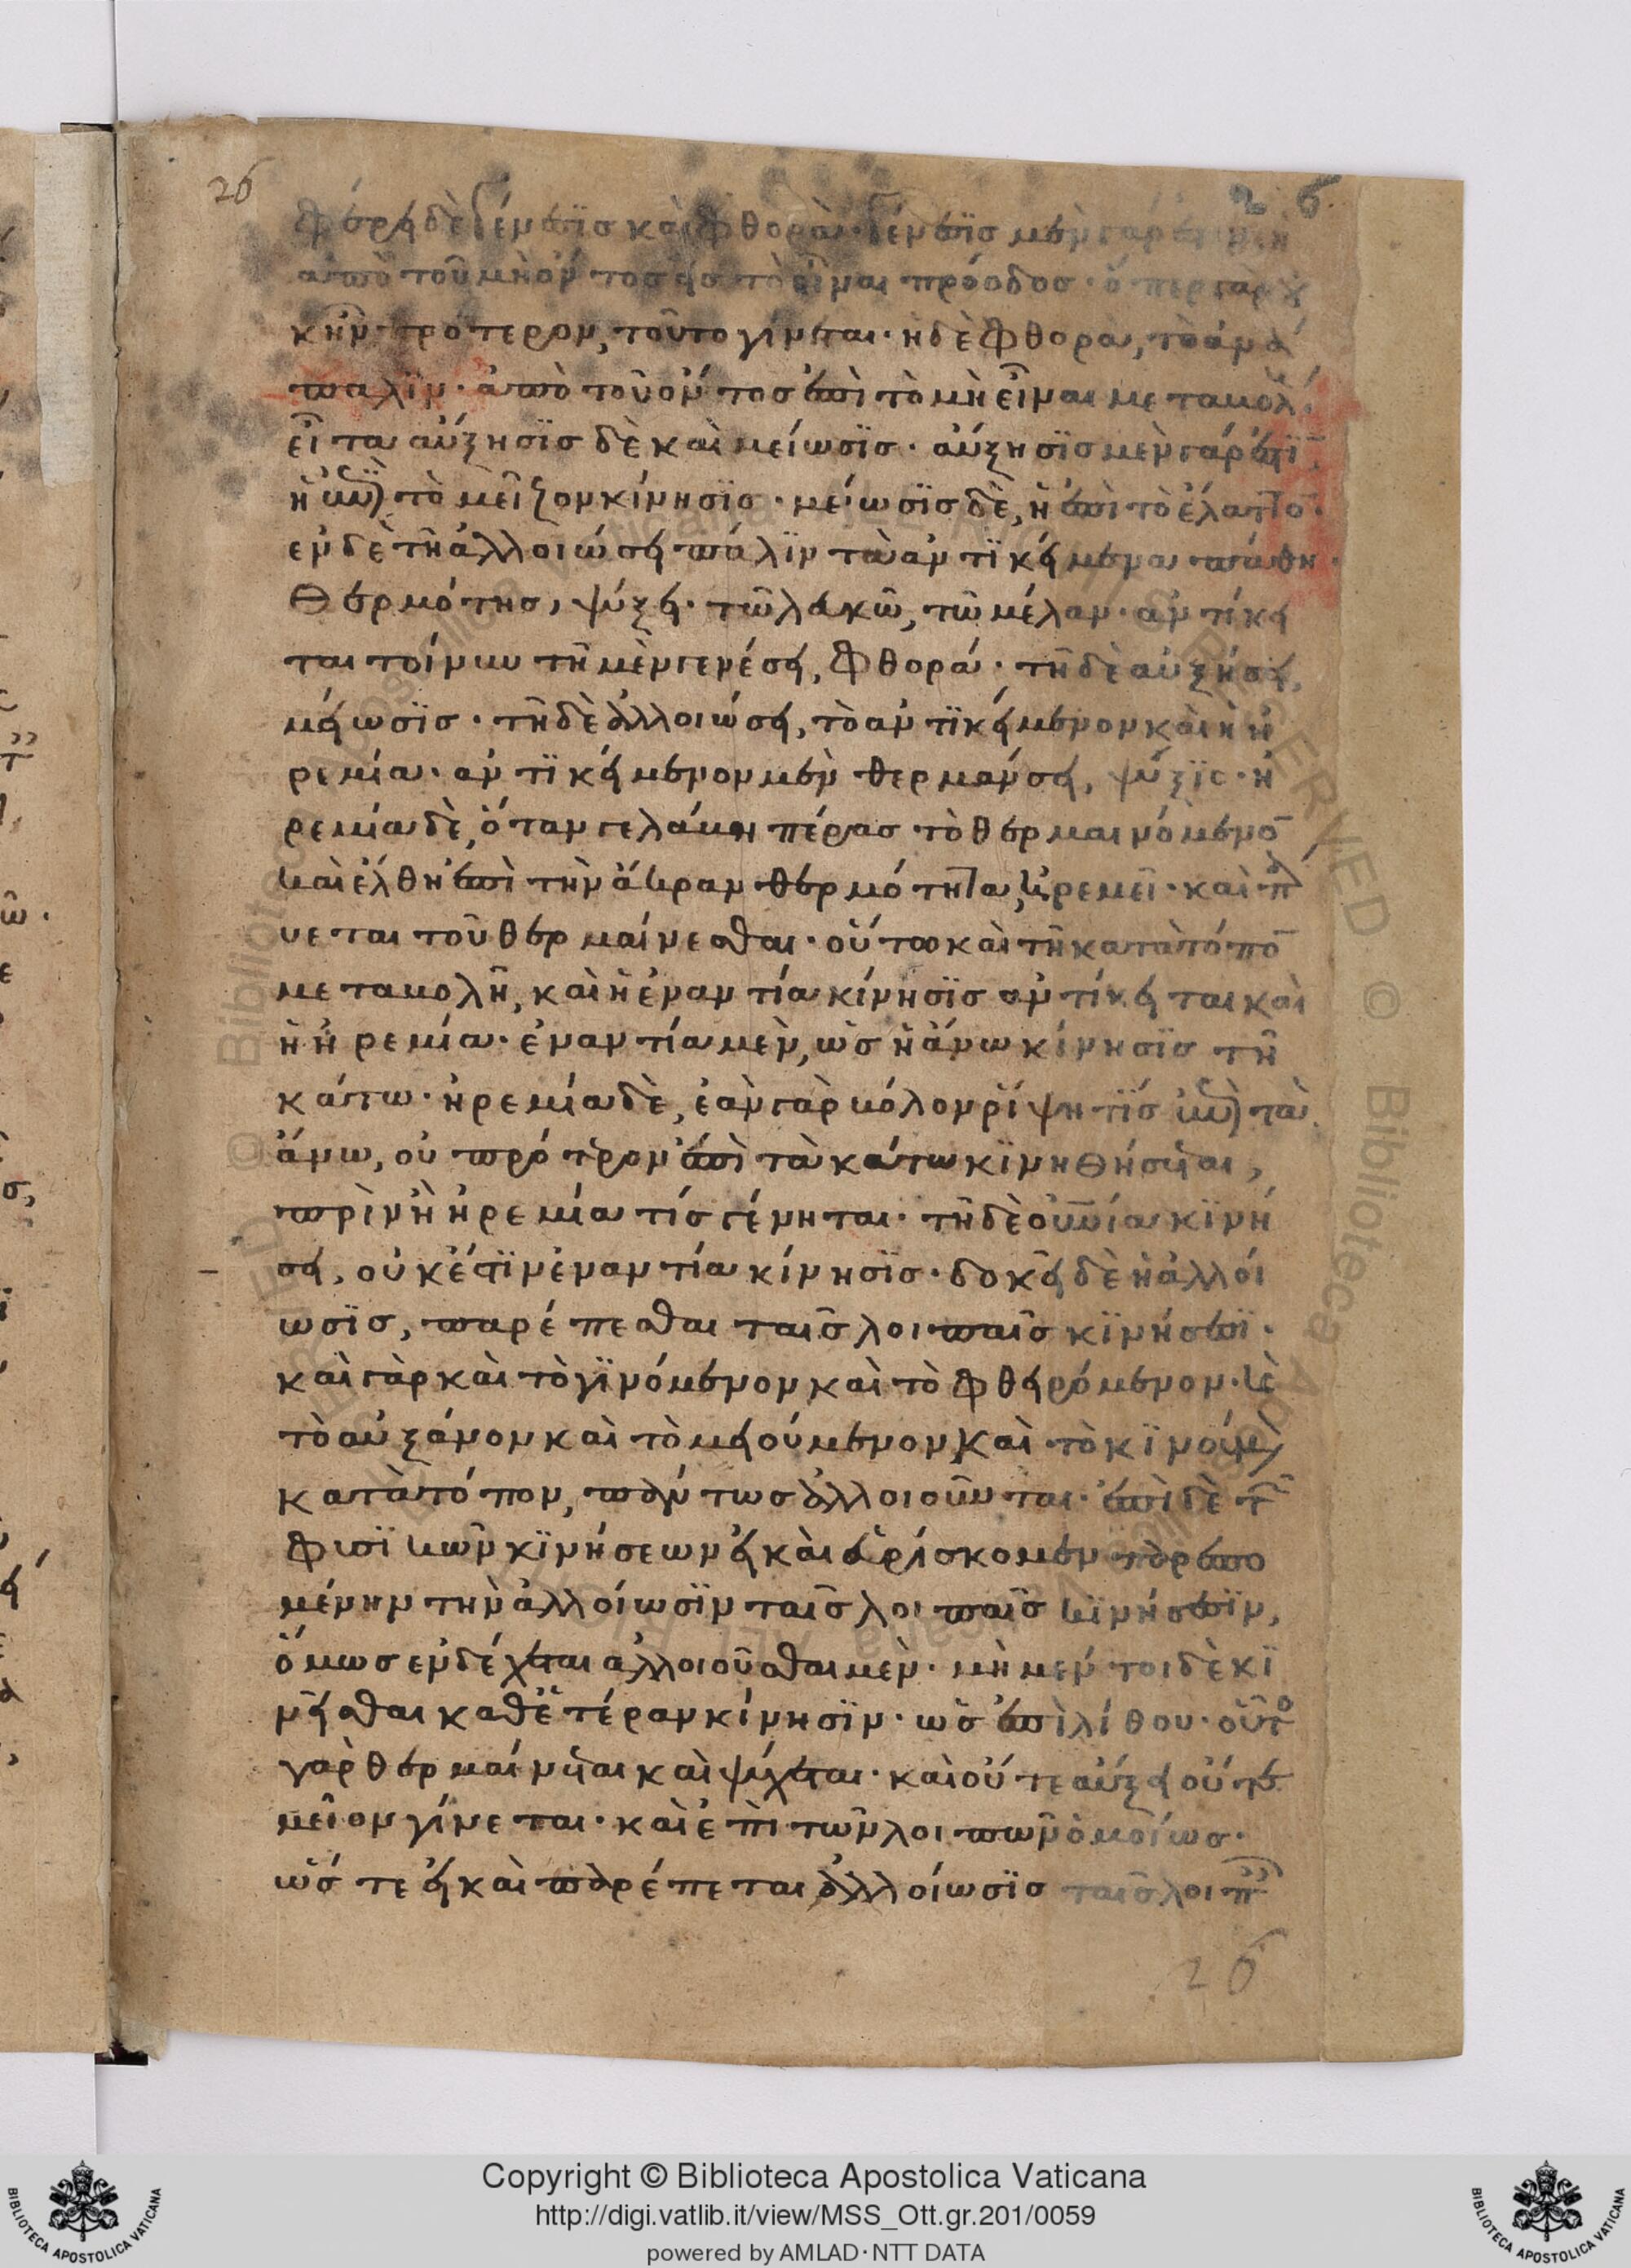 26
φέρει δὲ γένεσϊς καὶ φθορά· γένεσϊς μὲν γάρ ἐστιν ἡ
ἀπὸ τοῦ μὴ ὄντος εἰς τὸ εἶναι πρόοδος· ὅπερ γὰρ οὐ
κ ἦν πρότερον, τοῦτο γίνεται· ἡ δὲ φθορὰ, τὸ ἀνά
παλϊν· ἀπὸ τοῦ ὄντος ἐπὶ τὸ μὴ εἶναι μεταβολή·
εἶτα αὔξησϊς δὲ καὶ μείωσϊς· αὔξησϊς μὲν γάρ ἐστϊν
ἡ ἐπὶ τὸ μεῖζον κίνησϊς· μείωσϊς δὲ, ἡ ἐπὶ τὸ ἔλαττον·
ἐν δὲ τῆ ἀλλοιώσει πάλϊν τὰ ἀντϊκείμενα πάθη·
Θερμότης, ψύξει· τῶ λευκῶ, τῶ μέλαν· ἀντίκει
ται τοίνυν τῆ μὲν γενέσει, φθορά· τῆ δὲ αὐξήσει,
μείωσϊς· τῆ δὲ ἀλλοιώσει, τὸ ἀντϊκείμενον καὶ ἡ ἠ
ρεμία· ἀντϊκείμενον μὲν θερμάνσει, ψύξϊς· ἠ
ρεμία δὲ, ὅταν γε λάβη πέρας τὸ θερμαινόμενον
καὶ ἔλθη ἐπὶ τὴν ἄκραν θερμότητα, ἠρεμεῖ· καὶ π
υεται τοῦ θερμαίνεσθαι· οὕτω καὶ τῆ κατὰ τόπον
μεταβολῆ, καὶ ἡ ἐναντία κίνησϊς ἀντίκειται καὶ
ἡ ἠρεμία· ἐναντία μὲν, ὡς ἡ ἄνω κίνησϊς τῆ
κάτω· ἠρεμία δὲ, ἐὰν γὰρ βόλον ῥίψη τϊς ἐπὶ τὰ
ἄνω, οὐ πρότερον ἐπὶ τὰ κάτω κϊνηθήσεται,
πρὶν ἢ ἠρεμία τίς γένηται· τῆ δὲ οὐσία κϊνή
σει, οὐκ ἔστϊν ἐναντία κίνησϊς· δοκεῖ δὲ ἡ ἀλλοί
ωσϊς, παρέπεσθαι ταῖς λοιπαῖς κϊνήσεσϊ·
καὶ γὰρ καὶ τὸ γϊνόμενον καὶ τὸ φθειρόμενον· καὶ
τὸ αὐξάνον καὶ τὸ μειούμενον καὶ τὸ κϊνούμενον
κατὰ τόπον, πάντως ἀλλοιοῦνται· ἐπὶ δὲ τῶν
φυσϊκῶν κϊνήσεων εἰ καὶ εὑρίσκομεν παρεπο
μένην τὴν ἀλλοίωσϊν ταῖς λοιπαῖς κϊνήσεσϊν,
ὅμως ἐνδέχεται ἀλλοιοῦσθαι μὲν· μὴ μέντοι δὲ κϊ
νεῖσθαι καθ' ἑτέραν κίνησϊν· ὡς ἐπὶ λίθου· οὗτος
γὰρ θερμαίνεται καὶ ψύχεται· καὶ οὔτε αὔξει οὔτε
μεῖον γίνεται· καὶ ἐπὶ τῶν λοιπῶν ὁμοίως·
ὥστε εἰ καὶ παρέπεται ἀλλοίωσϊς ταῖς λοιπ
26
Copyright © Biblioteca Apostolica Vaticana
http://digi.vatlib.it/view/MSS_Ott.gr.201/0059
powered by AMLAD·NTT DATA